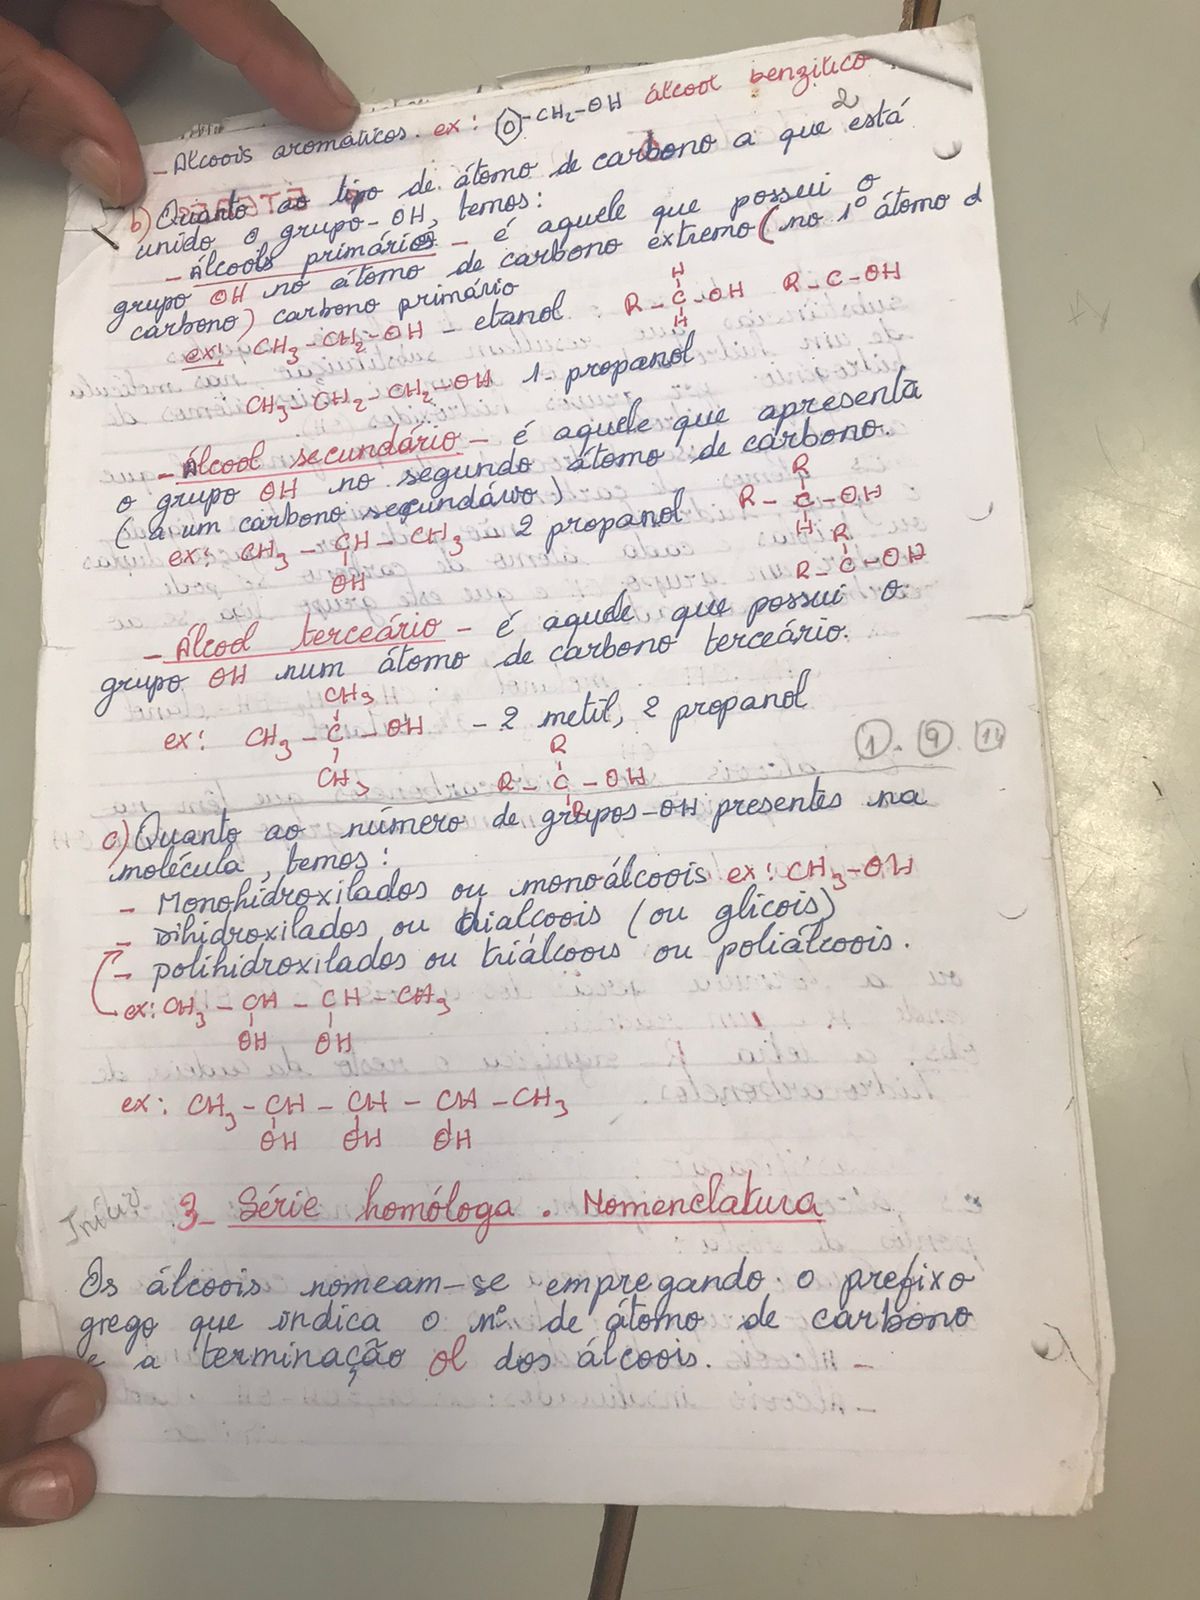 - Alcoois aromáticos. ex: O - CH2 - OH álcool benzílico.
2
b) Quanto ao tipo de átomo de carbono a que está
unido o grupo - OH, temos:
- Álcoois primários - é aquele que possui o
grupo OH no átomo de carbono extremo (no 1º átomo d
carbono) carbono primário
H
R - C - OH R - C - OH
H
ex: CH3 - CH2 - OH - etanol
CH3 - CH2 - CH2 - OH 1- propanol
- Álcool secundário - é aquele que apresenta
o grupo OH no segundo átomo de carbono.
(a um carbono secundário)
R
R - C - OH
H
ex: CH3 - CH - CH3 2 propanol
OH
R
R - C - OH
- Álcool terceário - é aquele que possui o
grupo OH num átomo de carbono terceário.
CH3
ex: CH3 - C - OH - 2 metil, 2 propanol
CH3
1. 9. 14
R
R - C - OH
R
c) Quanto ao número de grupos - OH presentes na
molécula, temos:
- Monohidroxilados ou monoálcoois ex: CH3 - OH
- Dihidroxilados ou dialcoois (ou glicois)
- polihidroxilados ou triálcoois ou poliálcoois.
ex: CH3 - CH - CH - CH3
OH OH
ex: CH3 - CH - CH - CH - CH3
OH OH OH
Início 3- Série homóloga. Nomenclatura
Os álcoois nomeam-se empregando o prefixo
grego que indica o nº de átomo de carbono
e a terminação ol dos álcoois.